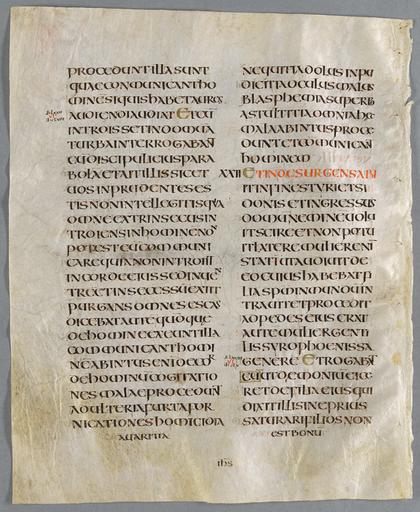 PROCEDUNTILLASUNT
QUAECOMMUNICANTHO
MINĒSIQUISHABETAURES
AUDIENDIAUDIAT ETCŪ
INTROISSETINDOMUMA
TURBAINTERROGABAN̄
EUMDISCIPULIEIUSPARA
BOLĀETAITILLISSICET
UOSINPRUDENTESES
TISNONINTELLEGITISQUIA
OMNEEXTRINSECUSIN
TROIENSINHOMINENŌ
POTESTEUMCOMMUNI
CAREQUIANONINTROIIT
INCOREIUSSEDINUEN̄
TREETINSECESSŪEXIIT
PURGANSOMNESESCAS
DICEBATAUTĒQUŌQUE
DEHOMINEEXEUNTILLA
COMMUNICANTHOMI
NĒABINTUSENĪDECOR
DEHOMINŪCOGITATIO
NESMALAEPROCEDUN̄
ADULTERIAFURTAFOR
NICATIONESHOMICIDIA
AUARITIA
NEQUITIADOLUSINPU
DICITIAOCULUSMALUS
BLASPHEMIASUPERB
ASTULTITIAOMNIAHAEC
MALAABINTUSPROCE
DUNTETCOMMUNICAN̄
HOMINEM
XXII ETINDESURGENSABII
ITINFINESTYRIETSI
DONISETINGRESSUS
DOMŪNEMINEUOLU
ITSCIREETNONPOTU
ITLATEREMULIERENĪ
STATĪUTAUDIUITDE
EOCUIUSHABEBATFI
LIASPMINMUNDŪIN
TRAUITETPROCIDIT
ADPEDESEIUSERAT
AUTĒMULIERGENTI
LISSYROPHOENISSA
GENERE ETROGABAT
EŪUTDEMONIŪEICE
RETDEFILIAEIUSQUI
DIXITILLISINEPRIUS
SATURARIFILIOSNON
ESTBONŪ
ihs